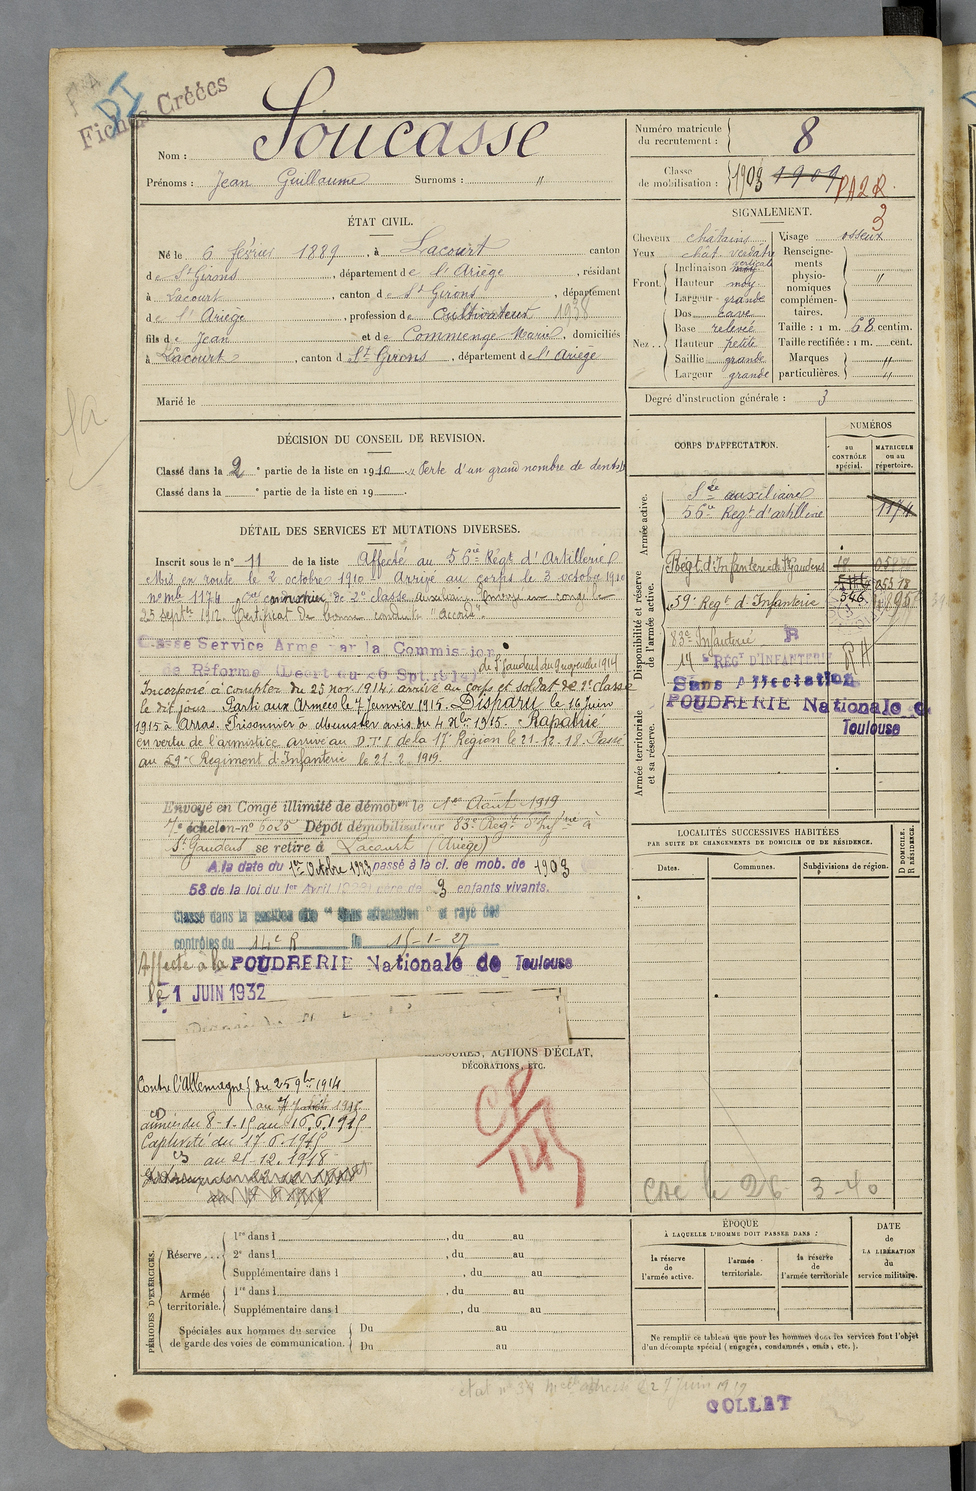 Fiches Créées
Nom : Soucasse
Prénoms : Jean Guillaume Surnoms : "
Numéro matricule du recrutement : 8
Classe de mobilisation : 1903 1909 PA2R.
3
ÉTAT CIVIL.
Né le 6 février 1889, à Lacourt canton
de St Girons, département de l'Ariège, résidant
à Lacourt, canton de St Girons, département
de l'Ariège, profession de Cultivateur 1938
fils de Jean et de Commenge Marie, domiciliés
à Lacourt, canton de St Girons, département de l'Ariège
Marié le
SIGNALEMENT.
Cheveux châtains
Yeux chât. verdâtre
Front. Inclinaison verticale moy
Hauteur moy.
Largeur grande
Nez. Dos cave
Base relevée
Hauteur petite
Saillie grande
Largeur grande
Visage osseux
Renseignements physionomiques complémentaires. "
Taille : 1 m. 68 centim.
Taille rectifiée : 1 m. cent.
Marques particulières. "
"
Degré d'instruction générale : 3
DÉCISION DU CONSEIL DE REVISION.
Classé dans la 2e partie de la liste en 1910. Perte d'un grand nombre de dents
Classé dans la e partie de la liste en 19 .
DÉTAIL DES SERVICES ET MUTATIONS DIVERSES.
Inscrit sous le n° 11 de la liste Affecté au 56e Régt d'Artillerie
Mis en route le 2 octobre 1910. Arrivé au corps le 3 octobre 1910
canonnier de 2e classe auxiliaire. Envoyé en congé le
25 septre 1912. Certificat de bonne conduite "Accordé".
Classé Service Armé par la Commission
de Réforme (Décret du 26 Sept. 1914) de St Gaudens du 9 novembre 1914
Incorporé à compter du 25 nov. 1914, arrivé au corps et soldat de 2e classe
le dit jour. Parti aux Armées le 7 Janvier 1915. Disparu le 16 juin
1915 à Arras. Prisonnier à Munster avis du 4 Xbre 1915. Rapatrié
en vertu de l'armistice arrivé au D.T.I. de la 17e Région le 21-12-18. Passé
au 59e Régiment d'Infanterie le 21.2.1919.
Envoyé en Congé illimité de démobon le 1er Août 1919
7e échelon n° 6025 Dépôt démobilisateur 83e Régt d'Infrie à
St Gaudens se retire à Lacourt (Ariège)
A la date du 1er Octobre 1923 passé à la cl. de mob. de 1903
58 de la loi du 1er Avril 1923) père de 3 enfants vivants.
Classé dans la position dite "sans affectation" et rayé des
contrôles du 14e R le 15-1-27
Affecté à la POUDRERIE Nationale de Toulouse
le 1 JUIN 1932
Contre l'Allemagne du 25 9bre 1914
au
du 8-1-15 au 16.6.1915
Captivité du 17.6.1915
au 21.12.1918
BLESSURES, ACTIONS D'ÉCLAT,
DÉCORATIONS, ETC.
CP
145
CORPS D'AFFECTATION.
NUMÉROS
au CONTRÔLE spécial.
MATRICULE ou au répertoire.
Armée active.
Sce auxiliaire
56e Regt d'artillerie 1174
Disponibilité et réserve de l'armée active.
Régt d'Infanterie de St Gaudens
59e Regt d'Infanterie 546
83e Infanterie R
14e RÉGt D'INFANTERIE
Sans Affectation
POUDRERIE Nationale de
Toulouse
Armée territoriale et sa réserve.
LOCALITÉS SUCCESSIVES HABITÉES
PAR SUITE DE CHANGEMENTS DE DOMICILE OU DE RÉSIDENCE.
Dates. Communes. Subdivisions de région. D DOMICILE. R RÉSIDENCE.
le 26 3-40
PÉRIODES D'EXERCICES.
Réserve 1re dans l , du au
2e dans l , du au
Supplémentaire dans l , du au
Armée territoriale. 1re dans l , du au
Supplémentaire dans l , du au
Spéciales aux hommes du service de garde des voies de communication. Du au
Du au
ÉPOQUE
À LAQUELLE L'HOMME DOIT PASSER DANS :
la réserve de l'armée active.
l'armée territoriale.
la réserve de l'armée territoriale
DATE DE LA LIBÉRATION du service militaire.
Ne remplir ce tableau que pour les hommes dont les services font l'objet
d'un décompte spécial (engagés, condamnés, omis, etc.).
COLLET